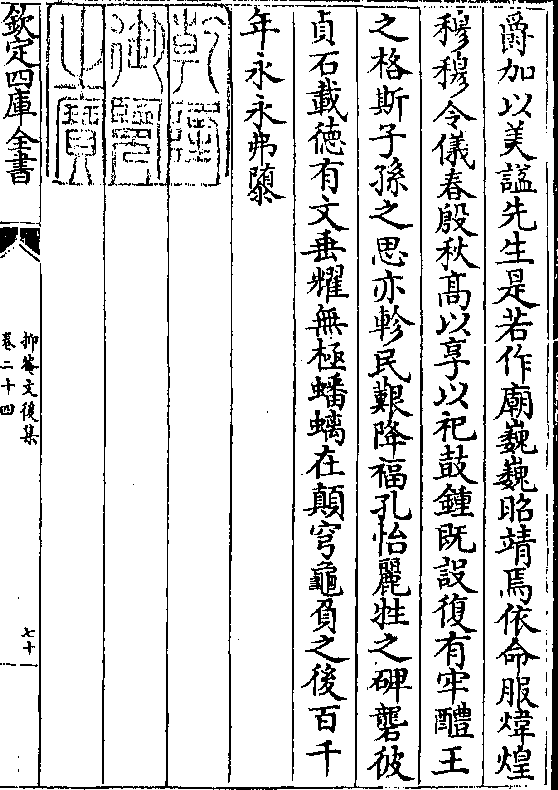 爵加以美諡先生是若作廟巍巍昭靖焉依命服煒煌
穆穆令儀春殷秋髙以享以祀鼓鍾既設復有牢醴王
之格斯子孫之思亦軫民艱降福孔怡麗牲之碑礱彼
貞石載徳有文垂耀無極蟠螭在顛穹龜負之後百千
年永永弗隳
乾隆
御覽
之寶
欽定四庫全書
抑菴文後集
卷二十四
七十